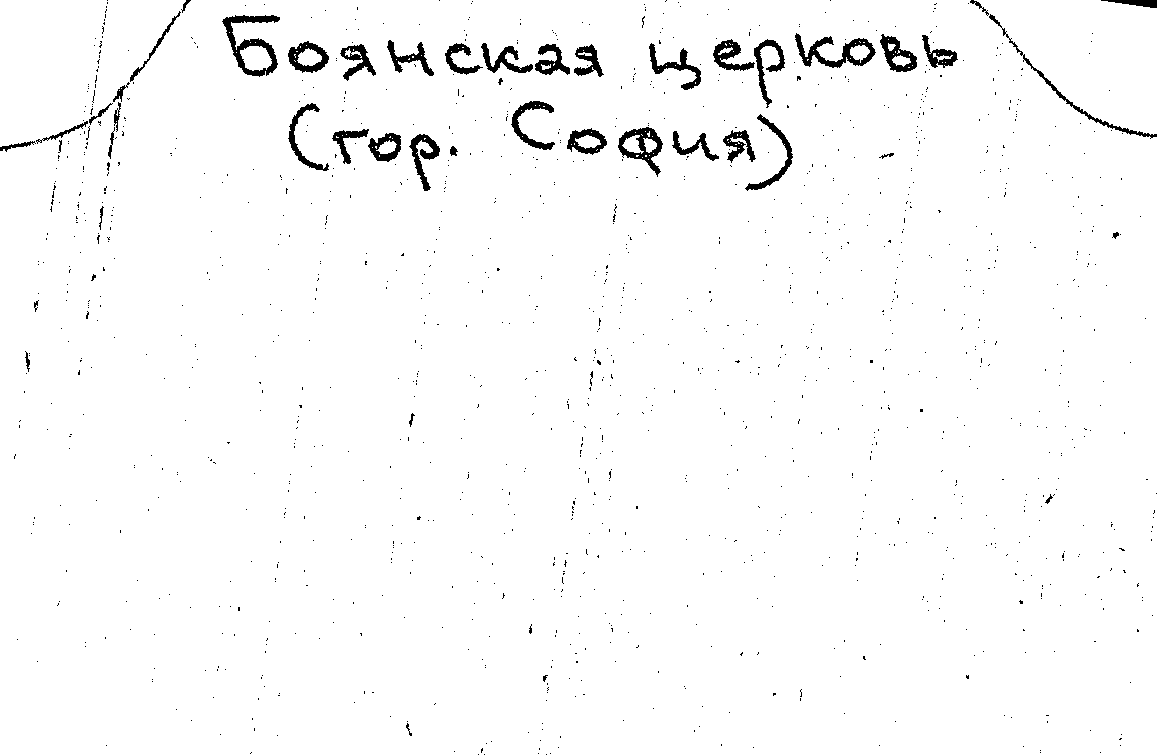 Боянская церковь
(гор. София)